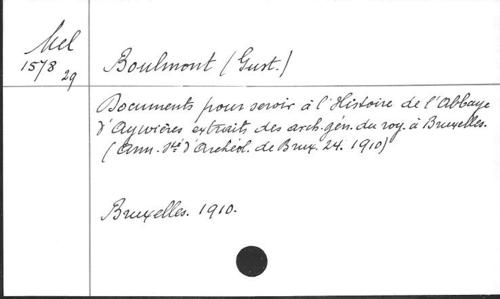 Mel
1578
29
Boulmont (Gust.)
Documents pour servir à l'Histoire de l'Abbaye
d'Aywières extraits des arch. gén. du roy. à Bruxelles.
(Ann. Sté d'Archéol. de Brux. 24. 1910)
Bruxelles. 1910.